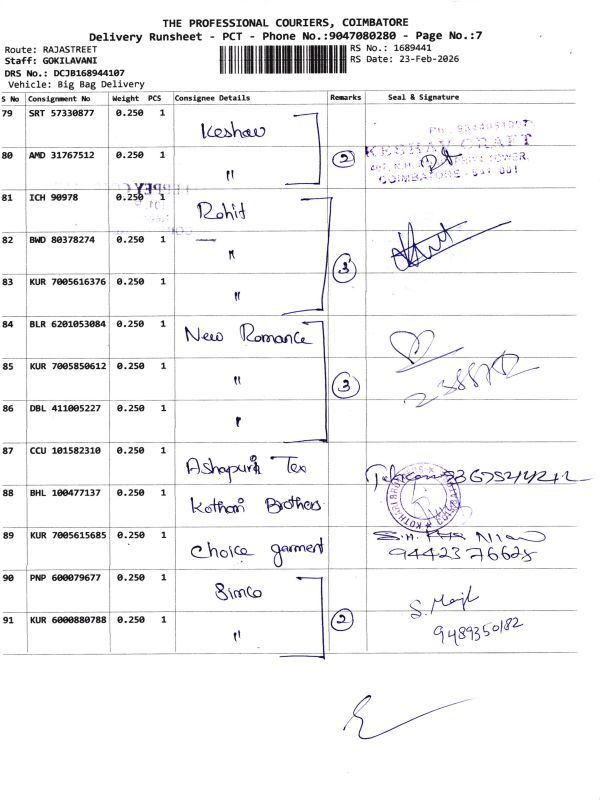 THE PROFESSIONAL COURIERS, COIMBATORE
Delivery Runsheet - PCT - Phone No.:9047080280 - Page No.:7
Route: RAJASTREET
Staff: GOKILAVANI
DRS No.: DCJB168944107
Vehicle: Big Bag Delivery
RS No.: 1689441
RS Date: 23-Feb-2026
S No Consignment No Weight PCS Consignee Details Remarks Seal & Signature
79 SRT 57330877 0.250 1 Keshav
80 AMD 31767512 0.250 1 " 2
KESHAV CRAFT
COIMBATORE - 641 001
81 ICH 90978 0.250 1 Rohit
82 BWD 80378274 0.250 1 "
83 KUR 7005616376 0.250 1 " 3
84 BLR 6201053084 0.250 1 New Romance
85 KUR 7005850612 0.250 1 " 3
86 DBL 411005227 0.250 1 "
87 CCU 101582310 0.250 1 Ashapura Tex
88 BHL 100477137 0.250 1 Kothari Brothers
KOTHARI BROTHERS
89 KUR 7005615685 0.250 1 Choice garment 9442376628
90 PNP 600079677 0.250 1 Simco
91 KUR 6000880788 0.250 1 " 2
9489350182